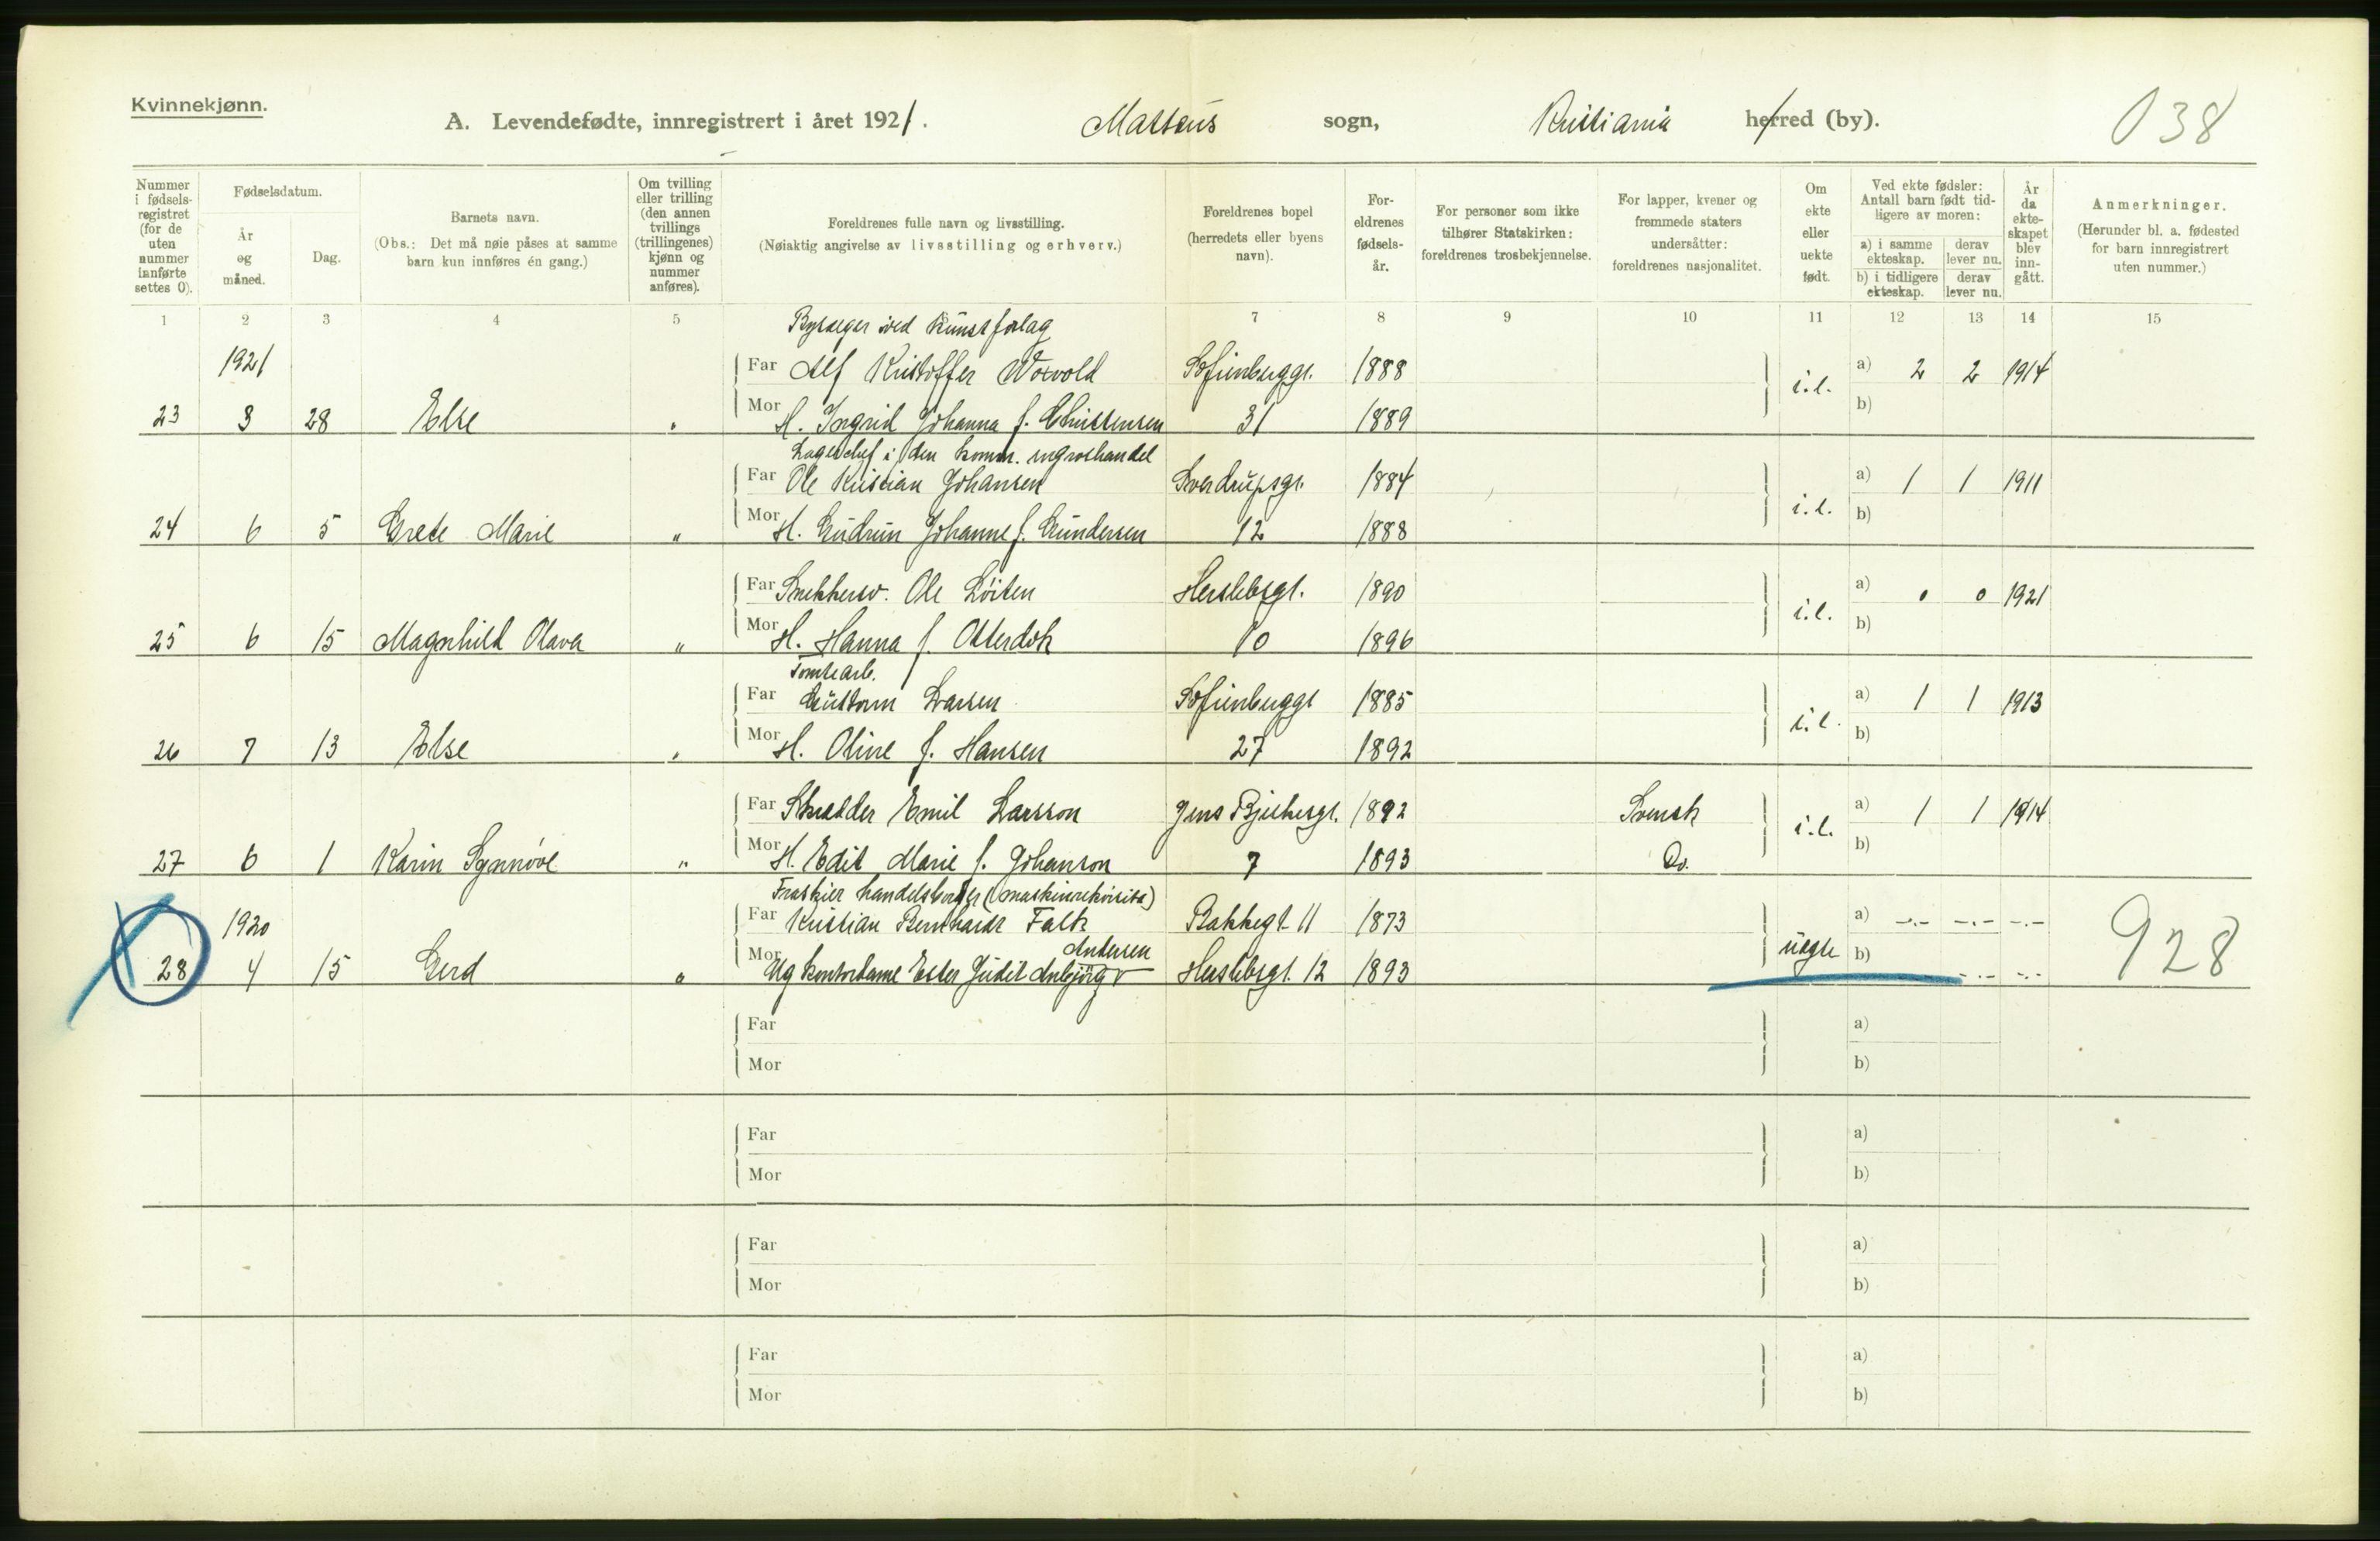 Kvinnekjønn.
A. Levendefødte, innregistrert i året 1921. Matteus sogn, Kristiania herred (by). 038
Nummer i fødselsregistret (for de uten nummer innførte settes 0).
Fødselsdatum.
År og måned.
Dag.
Barnets navn.
(Obs.: Det må nøie påses at samme barn kun innføres én gang.)
Om tvilling eller trilling (den annen tvillings (trillingenes) kjønn og nummer anføres).
Foreldrenes fulle navn og livsstilling.
(Nøiaktig angivelse av livsstilling og erhverv.)
Foreldrenes bopel (herredets eller byens navn).
Foreldrenes fødselsår.
For personer som ikke tilhører Statskirken: foreldrenes trosbekjennelse.
For lapper, kvener og fremmede staters undersåtter: foreldrenes nasjonalitet.
Om ekte eller uekte født.
Ved ekte fødsler: Antall barn født tidligere av moren:
a) i samme ekteskap. derav lever nu.
b) i tidligere ekteskap. derav lever nu.
År da ekteskapet blev inngått.
Anmerkninger.
(Herunder bl. a. fødested for barn innregistrert uten nummer.)
1 2 3 4 5 7 8 9 10 11 12 13 14 15
ved Kunstforlag
1921 Far Alf Kristoffer Sofienberggt. 1888 a) 2 2 1914
23 3 28 Else " Mor H. Ingrid Johanna f. Christensen 31 1889 i.e. b)
Lagerchef i den komm. engroshandel
Far Ole Kristian Johansen Sverdrupsgt. 1884 a) 1 1 1911
24 6 5 Grete Marie " Mor H. Gudrun Johanne f. Gundersen 12 1888 i.e. b)
Far Snekkersv. Ole Löiten Herslebsgt. 1890 a) 0 0 1921
25 6 15 Magnhild Olava " Mor H. Hanna f. Otterdok 10 1896 i.e. b)
Tomtearb.
Far Guttorm Larsen Sofienberggt 1885 a) 1 1 1913
26 7 13 Else " Mor H. Oline f. Hansen 27 1892 i.e. b)
Far Skrædder Emil Larsson Jens Bjelkesgt. 1892 Svensk a) 1 1 1914
27 6 1 Karin Synnöve " Mor H. Edit Marie f. Johanson 7 1893 Do. i.e. b)
Fraskier handelsborger (maskinrekvisita)
1920 Far Kristian Bernhardt Falk Bakkegt 11 1873 a) -.- -.- -.-
Andersen
28 4 15 Gerd " Mor Ug kontordame Ester Judit Anbjörg Herslebsgt. 12 1893 uegte b) -.- -.- 928
Far a)
Mor b)
Far a)
Mor b)
Far a)
Mor b)
Far a)
Mor b)